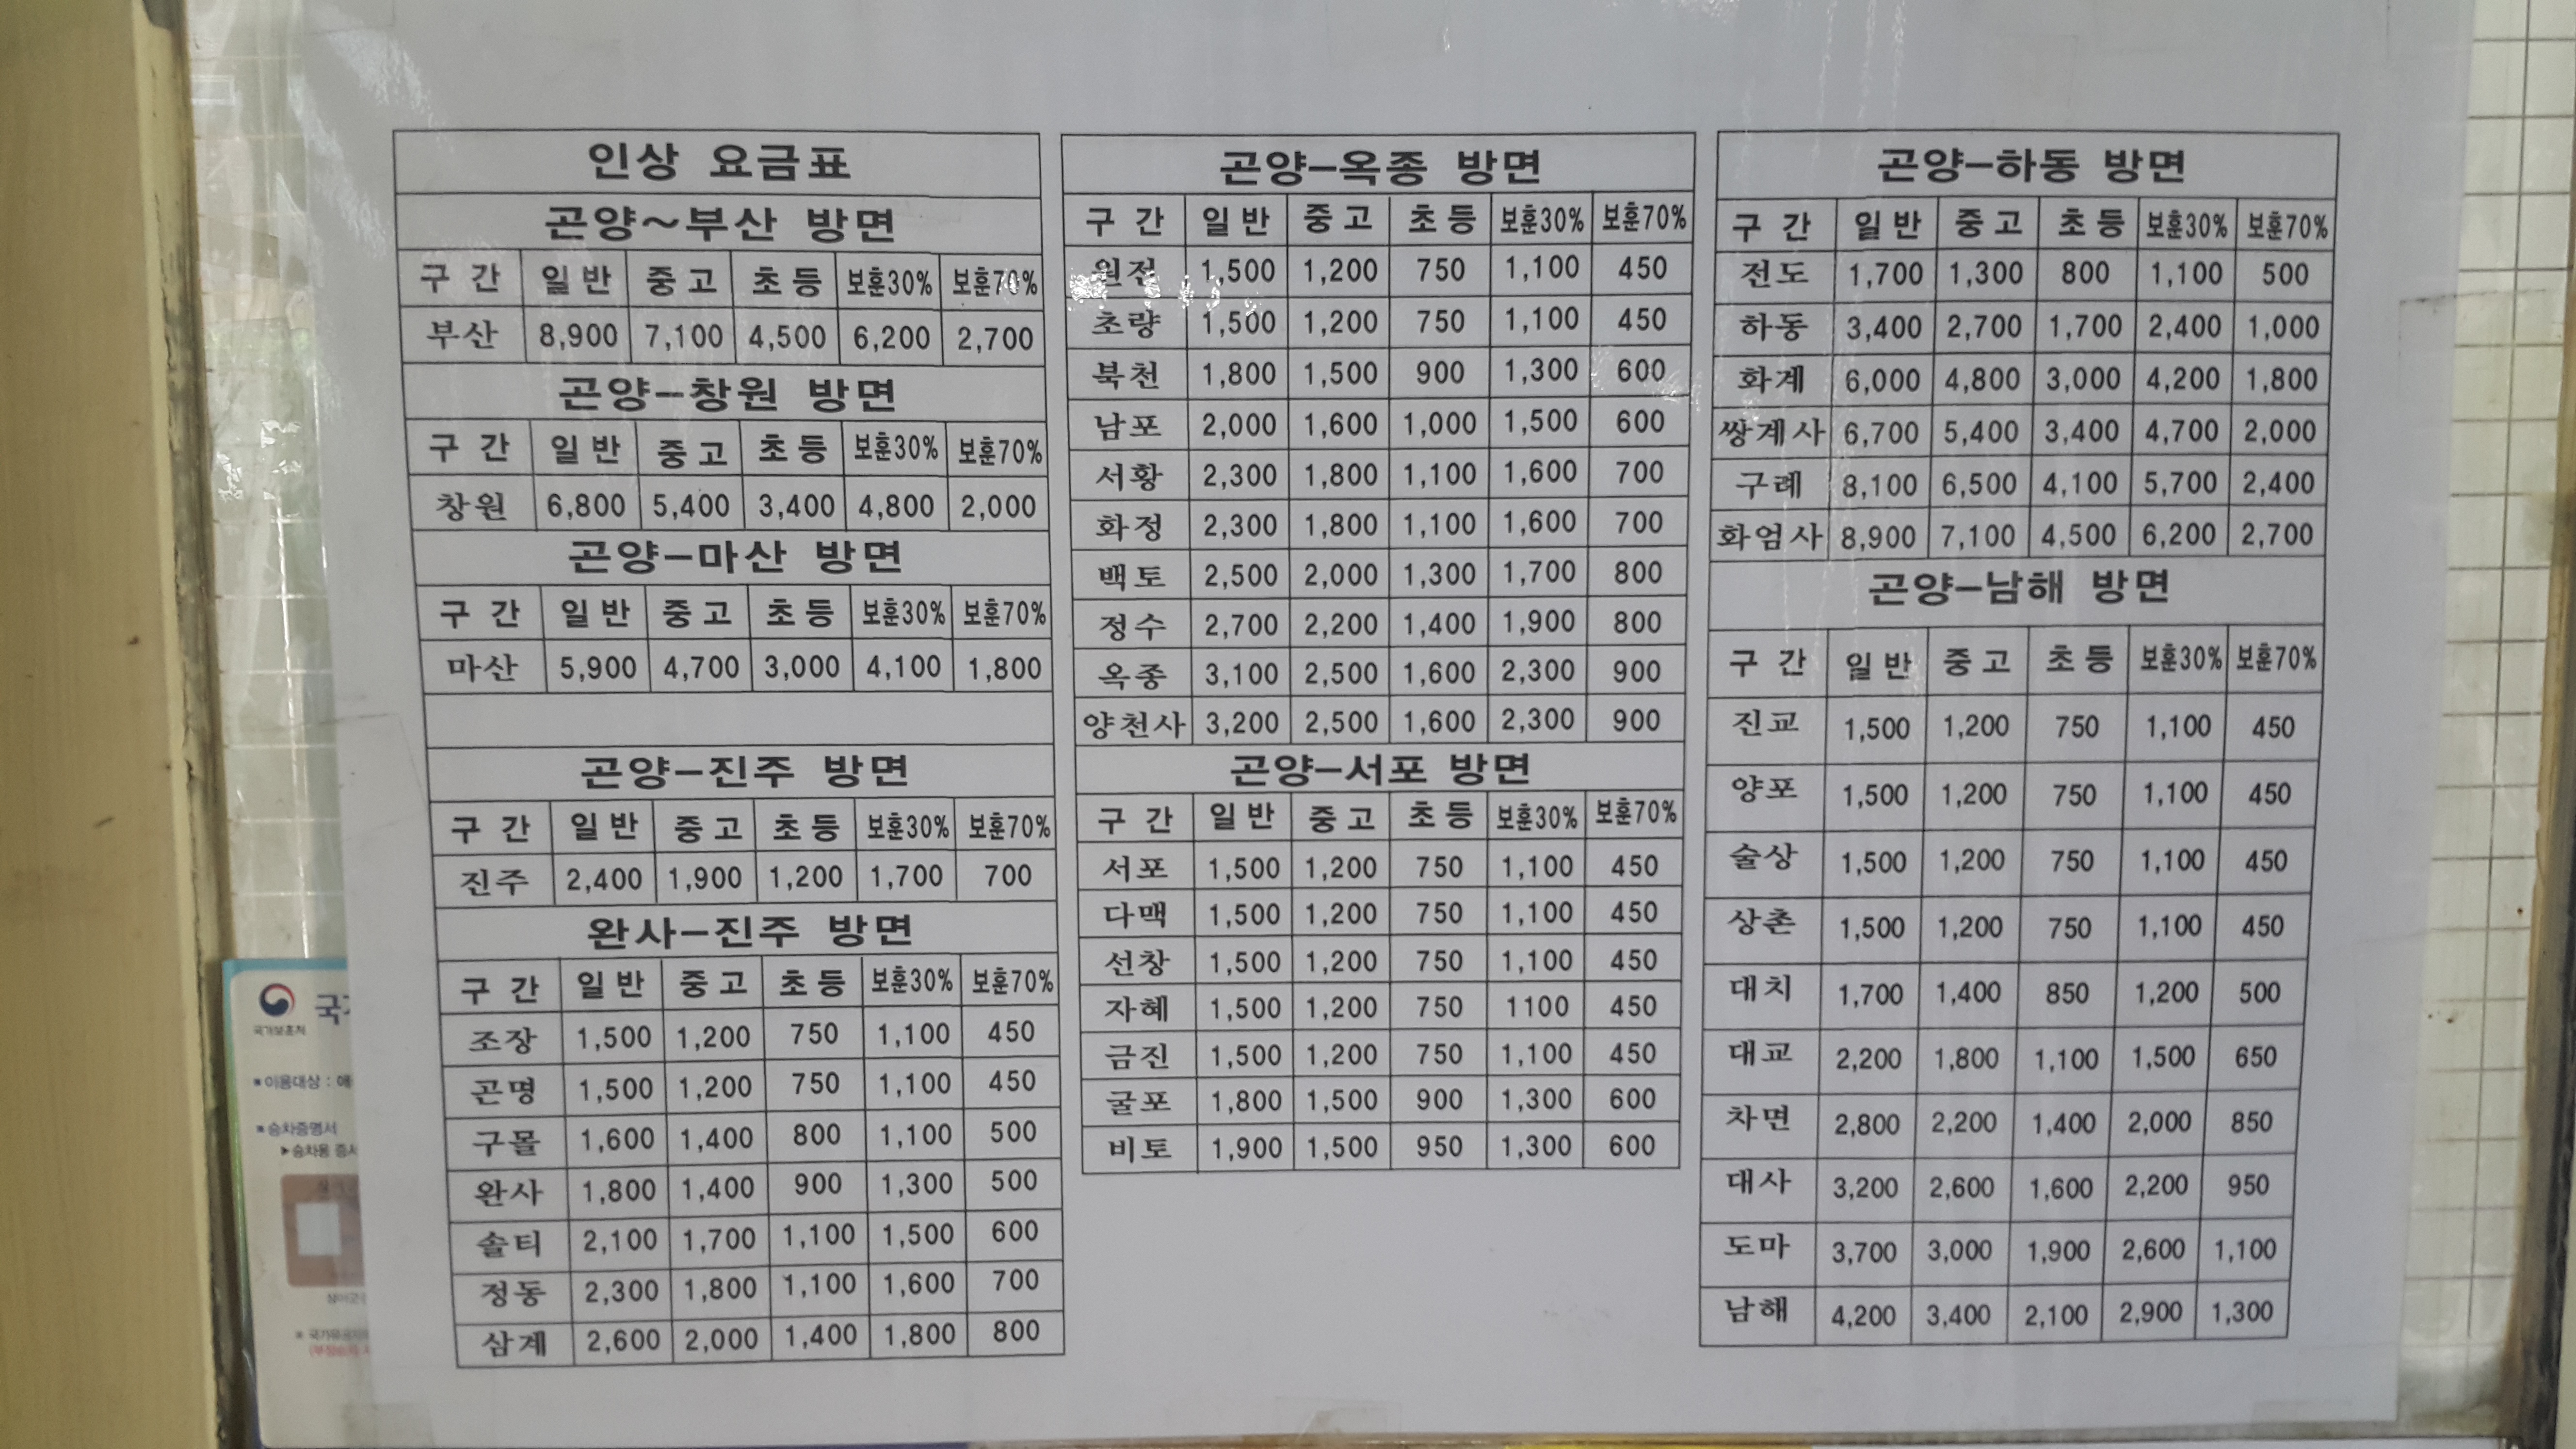 인상 요금표
곤양~부산 방면
구 간 일 반 중 고 초 등 보훈30% 보훈70%
부산 8,900 7,100 4,500 6,200 2,700
곤양-창원 방면
구 간 일 반 중 고 초 등 보훈30% 보훈70%
창원 6,800 5,400 3,400 4,800 2,000
곤양-마산 방면
구 간 일 반 중 고 초 등 보훈30% 보훈70%
마산 5,900 4,700 3,000 4,100 1,800
곤양-진주 방면
구 간 일 반 중 고 초 등 보훈30% 보훈70%
진주 2,400 1,900 1,200 1,700 700
완사-진주 방면
구 간 일 반 중 고 초 등 보훈30% 보훈70%
조장 1,500 1,200 750 1,100 450
곤명 1,500 1,200 750 1,100 450
구몰 1,600 1,400 800 1,100 500
완사 1,800 1,400 900 1,300 500
솔티 2,100 1,700 1,100 1,500 600
정동 2,300 1,800 1,100 1,600 700
삼계 2,600 2,000 1,400 1,800 800
곤양-옥종 방면
구 간 일 반 중 고 초 등 보훈30% 보훈70%
원전 1,500 1,200 750 1,100 450
초량 1,500 1,200 750 1,100 450
북천 1,800 1,500 900 1,300 600
남포 2,000 1,600 1,000 1,500 600
서황 2,300 1,800 1,100 1,600 700
화정 2,300 1,800 1,100 1,600 700
백토 2,500 2,000 1,300 1,700 800
정수 2,700 2,200 1,400 1,900 800
옥종 3,100 2,500 1,600 2,300 900
양천사 3,200 2,500 1,600 2,300 900
곤양-서포 방면
구 간 일 반 중 고 초 등 보훈30% 보훈70%
서포 1,500 1,200 750 1,100 450
다맥 1,500 1,200 750 1,100 450
선창 1,500 1,200 750 1,100 450
자혜 1,500 1,200 750 1100 450
금진 1,500 1,200 750 1,100 450
굴포 1,800 1,500 900 1,300 600
비토 1,900 1,500 950 1,300 600
곤양-하동 방면
구 간 일 반 중 고 초 등 보훈30% 보훈70%
전도 1,700 1,300 800 1,100 500
하동 3,400 2,700 1,700 2,400 1,000
화계 6,000 4,800 3,000 4,200 1,800
쌍계사 6,700 5,400 3,400 4,700 2,000
구례 8,100 6,500 4,100 5,700 2,400
화엄사 8,900 7,100 4,500 6,200 2,700
곤양-남해 방면
구 간 일 반 중 고 초 등 보훈30% 보훈70%
진교 1,500 1,200 750 1,100 450
양포 1,500 1,200 750 1,100 450
술상 1,500 1,200 750 1,100 450
상촌 1,500 1,200 750 1,100 450
대치 1,700 1,400 850 1,200 500
대교 2,200 1,800 1,100 1,500 650
차면 2,800 2,200 1,400 2,000 850
대사 3,200 2,600 1,600 2,200 950
도마 3,700 3,000 1,900 2,600 1,100
남해 4,200 3,400 2,100 2,900 1,300
국가보훈처
■이용대상 :
■승차증명서
▶승차용